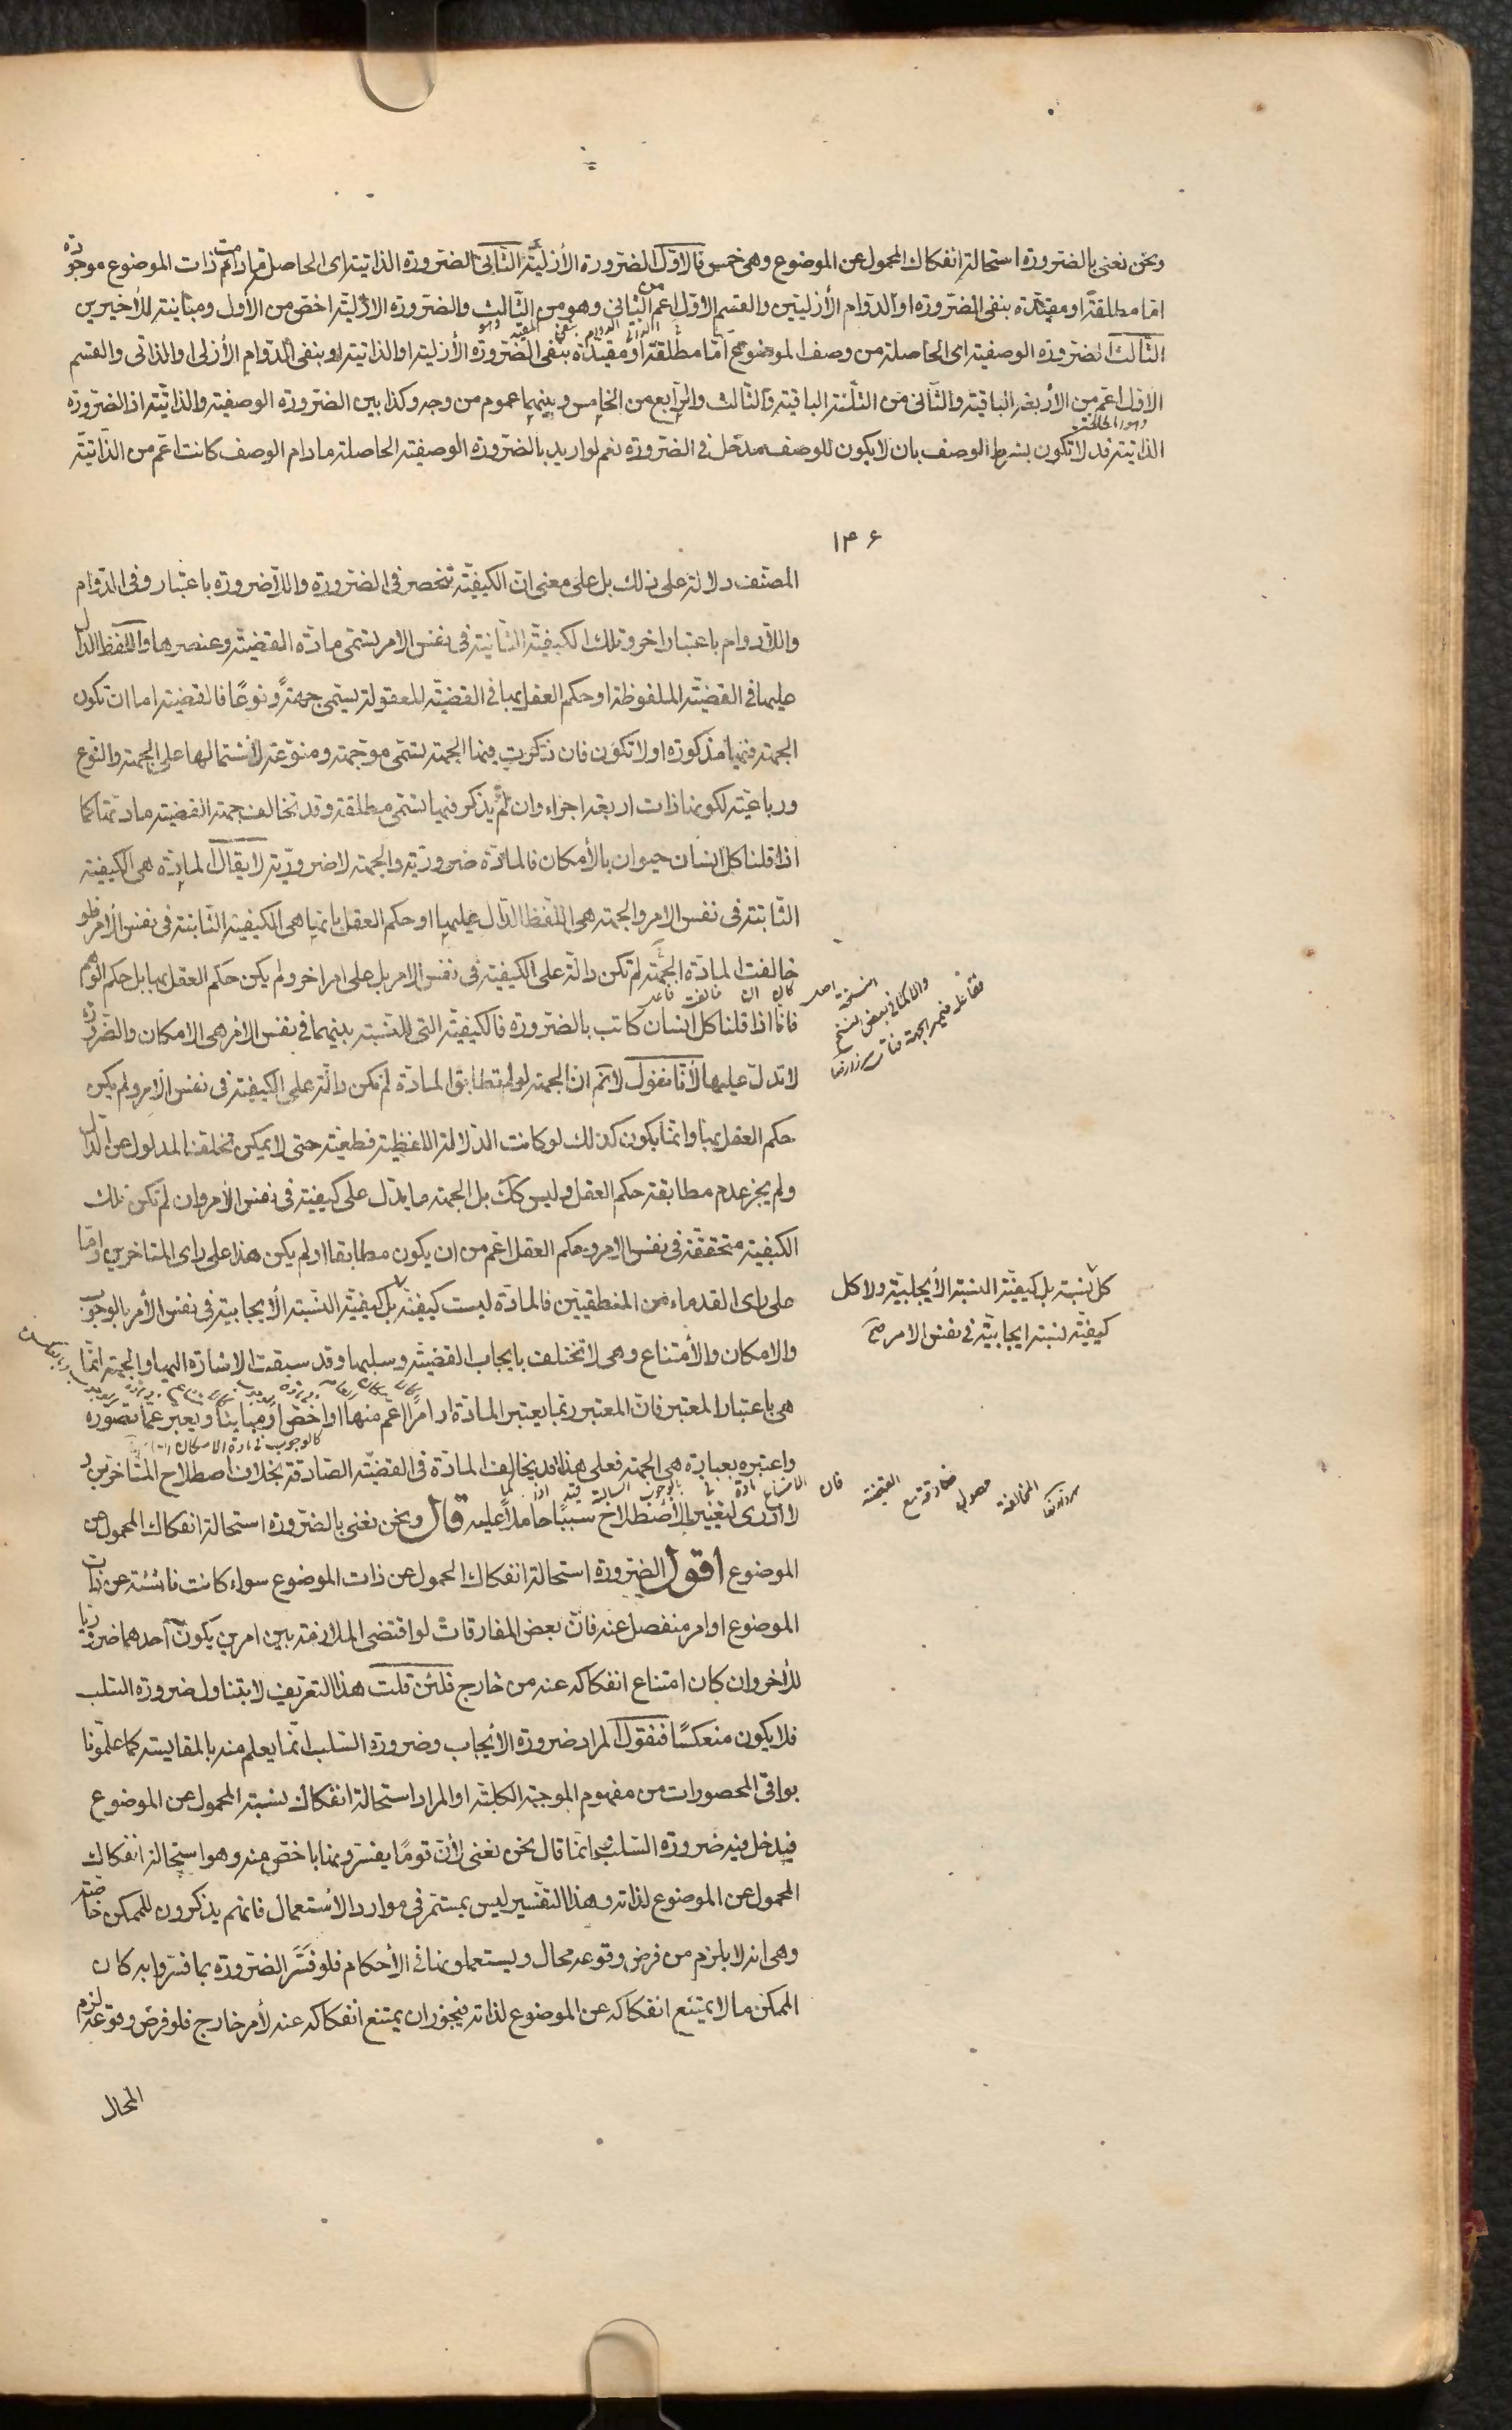 ونحن نعنى بالضرورة استحالة انفكاك المحمول عن الموضوع وهى خمس فالاول الضرورة الأزليّة الثانى الضرورة الذاتية اى الحاصلة مادامت ذات الموضوع موجودة
امّا مطلقةً او مقيّدة بنفى الضرورة او الدوام الأزليتين والقسم الاوّل اعم من الثانى وهو من الثّالث والضرورة الازليّة اخصّ من الأول ومباينة للأخيرين
الثّالث الضرورة الوصفية اى الحاصلة من وصف الموضوع امّا مطلقةً او مقيدة بنفى الضرورة الأزلية او الذاتية او بنفى الدّوام الأزلى او الذاتى والقسم
الاوّل اعمّ من الأربعة الباقية والثّانى من الثّلثة الباقية والثّالث والرّابع من الخامس وبينهما عموم من وجه وكذا بين الضرورة الوصفية والذاتيّة اذ الضرورة
الذاتية قد لا تكون بشرط الوصف بان لا يكون للوصف مدخل فى الضرورة نعم لو اريد بالضرورة الوصفية الحاصلة مادام الوصف كانت اعمّ من الذّاتيّة
١۴۶
المصنّف دلالة على ذلك بل على معنى انّ الكيفيّة تنحصر فى الضرورة واللاضرورة باعتبار وفى الدّوام
واللادوام باعتبار اخر وتلك الكيفيّة الثّابتة فى نفس الامر يسمّى مادّة القضيّة وعنصرها واللّفظ الدالّ
عليها فى القضيّة الملفوظة او حكم العقل بها فى القضيّة المعقولة يسمّى جهةً ونوعًا فالقضية اما ان تكون
الجهة فيها مذكورة او لا تكون فان ذكرت فيها الجهة يسمّى موجّهة ومنوّعة لأشتمالها على الجهة والنّوع
ورباعيّة لكونها ذات اربعة اجزاء وان لم يذكر فيها يسمّى مطلقة وقد تخالف جهة القضية مادّتها كما
اذا قلنا كل انسان حيوان بالأمكان فالمادّة ضروريّة والجهة لا ضروريّة لا يقال المادّة هى الكيفيّة
الثّابتة فى نفس الامر والجهة هى اللّفظ الدّال عليها او حكم العقل بانها هى الكيفيّة الثّابتة فى نفس الأمر فلو
خالفت المادّة الجهة لم تكن دالّة على الكيفيّة فى نفس الامر بل على امر اخر ولم يكن حكم العقل بها بل حكم الوهم
فانا اذا قلنا كل انسان كاتب بالضرورة فالكيفيّة التى للنسبة بينهما فى نفس الامر هى الامكان والضرورة
لا تدلّ عليها لأنا نقول لا نم ان الجهة لو لم تطابق المادّة لم تكن دالّة على الكيفيّة فى نفس الامر ولم يكن
حكم العقل بها وانّما يكون كذلك لو كانت الدّلالة اللفظية قطعيّة حتى لا يمكن تخلّف المدلول عن الدّال
ولم يجز عدم مطابقة حكم العقل وليس كك بل الجهة ما يدّل على كيفيّة فى نفس الأمر وان لم تكن تلك
الكيفية متحققة فى نفس الامر وحكم العقل اعم من ان يكون مطابقا او لم يكن هذا على راى المتاخرين وامّا
على راى القدماء من المنطقيين فالمادّة ليست كيفيّة بل كيفيّة النّسبة الأيجابية فى نفس الأمر بالوجوب
كل نسبة بل كيفيّة النسبة الأيجابيّة ولا كل
كيفيّة نسبة ايجابيّة فى نفس الامر صح
والامكان والأمتناع وهى لا تختلف بايجاب القضيّة وسلبها وقد سبقت الاشارة اليها والجهة انّما
هى باعتبار المعتبر فانّ المعتبر ربّما يعتبر المادّة او امرًا اعمّ منها او اخصّ او مباينًا ويعبر عمّا تصوّره
واعتبره بعبارة هى الجهة فعلى هذا قد يخالف المادّة فى القضيّة الصّادقة بخلاف اصطلاح المتاخرين و
لا ادرى لتغيير الأصطلاح سببًا حاملًا عليه قال ونحن نعنى بالضرورة استحالة انفكاك المحمول عن
الموضوع اقول الضرورة استحالة انفكاك المحمول عن ذات الموضوع سواء كانت ناشئة عن ذات
الموضوع او امر منفصل عنه فانّ بعض المفارقات لو اقتضى الملازمة بين امرين يكون احدهما ضروريا
للأخر وان كان امتناع انفكاكه عنه من خارج فلئن قلت هذا التعريف لا يتناول ضرورة السّلب
فلا يكون منعكسًا فنقول المراد ضرورة الأيجاب وضرورة السّلب انّما يعلم منه بالمقايسة كما علّمونا
بواقى المحصورات من مفهوم الموجبة الكليّة او المراد استحالة انفكاك نسبة المحمول عن الموضوع
فيدخل فيه ضرورة السّلب وانّما قال نحن نعنى لأنّ قومًا يفسّرونها باخصّ منه وهو استحالة انفكاك
المحمول عن الموضوع لذاته وهذا التّفسير ليس بمستمرّ فى موارد الأستعمال فانهم يذكرون للممكن خاصّة
وهى انه لا يلزم من فرض وقوعه محال ويستعملونها فى الأحكام فلو فسّر الضرورة بما فسّروا به كان
الممكن ما لا يمتنع انفكاكه عن الموضوع لذاته فيجوز ان يمتنع انفكاكه عنه لأمر خارج فلو فرض وقوعه لزم
المحال